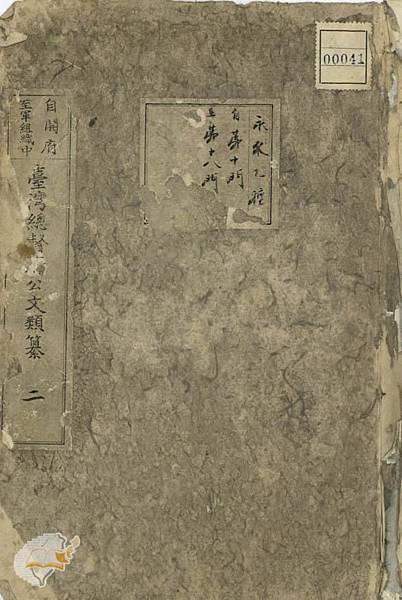 00041
永久乙種
自第十門
至第十八門
自開府
至軍組織中
臺灣總督府公文類纂 二